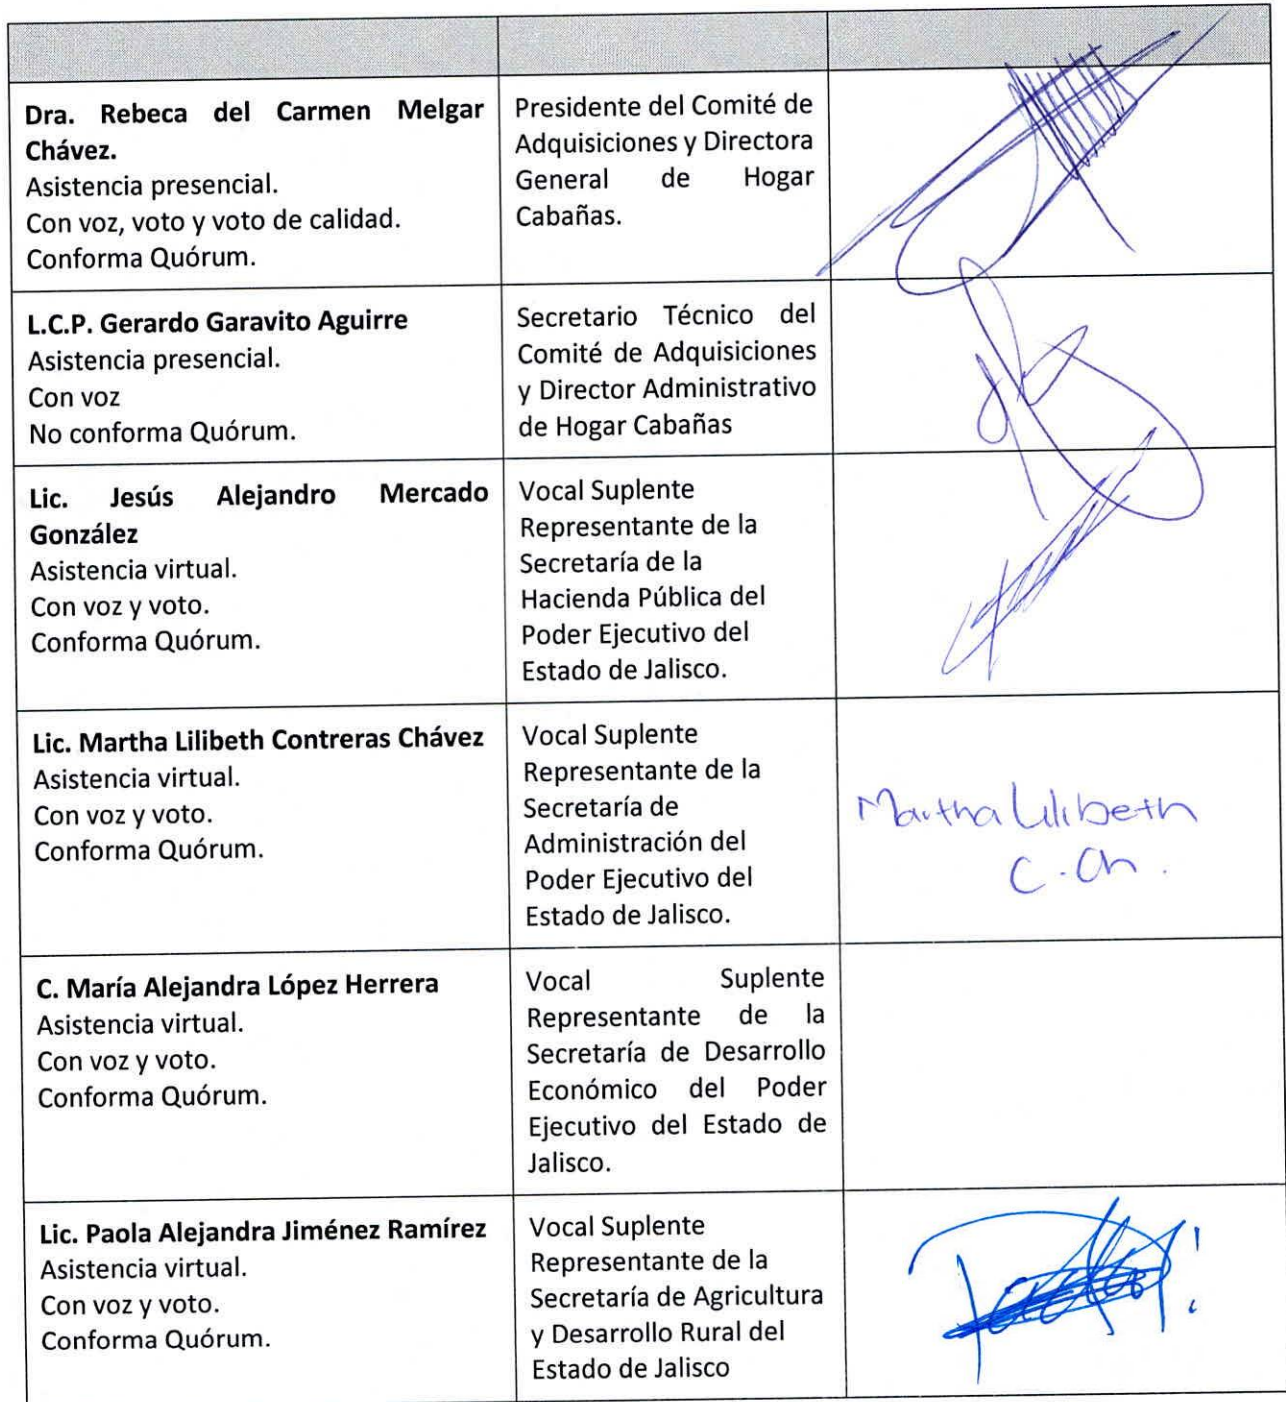 Dra. Rebeca del Carmen Melgar
Chávez.
Asistencia presencial.
Con voz, voto y voto de calidad.
Conforma Quórum.
Presidente del Comité de
Adquisiciones y Directora
General de Hogar
Cabañas.
L.C.P. Gerardo Garavito Aguirre
Asistencia presencial.
Con voz
No conforma Quórum.
Secretario Técnico del
Comité de Adquisiciones
y Director Administrativo
de Hogar Cabañas
Lic. Jesús Alejandro Mercado
González
Asistencia virtual.
Con voz y voto.
Conforma Quórum.
Vocal Suplente
Representante de la
Secretaría de la
Hacienda Pública del
Poder Ejecutivo del
Estado de Jalisco.
Lic. Martha Lilibeth Contreras Chávez
Asistencia virtual.
Con voz y voto.
Conforma Quórum.
Vocal Suplente
Representante de la
Secretaría de
Administración del
Poder Ejecutivo del
Estado de Jalisco.
Martha Lilibeth
C. Ch.
C. María Alejandra López Herrera
Asistencia virtual.
Con voz y voto.
Conforma Quórum.
Vocal Suplente
Representante de la
Secretaría de Desarrollo
Económico del Poder
Ejecutivo del Estado de
Jalisco.
Lic. Paola Alejandra Jiménez Ramírez
Asistencia virtual.
Con voz y voto.
Conforma Quórum.
Vocal Suplente
Representante de la
Secretaría de Agricultura
y Desarrollo Rural del
Estado de Jalisco